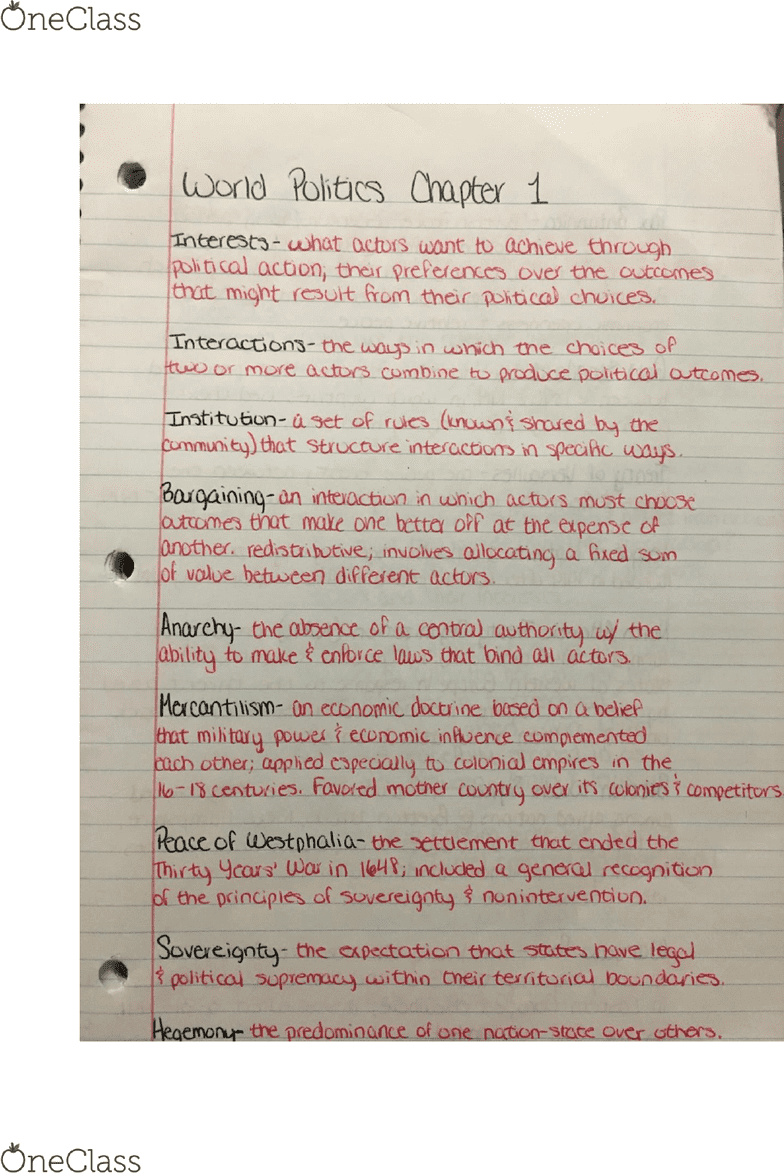 OneClass
World Politics Chapter 1
Interests- what actors want to achieve through
political action; their preferences over the outcomes
that might result from their political choices.
Interactions- the ways in which the choices of
two or more actors combine to produce political outcomes.
Institution- a set of rules (known & shared by the
community) that structure interactions in specific ways.
Bargaining- an interaction in which actors must choose
outcomes that make one better off at the expense of
another. redistributive; involves allocating a fixed sum
of value between different actors.
Anarchy- the absence of a central authority w/ the
ability to make & enforce laws that bind all actors.
Mercantilism- an economic doctrine based on a belief
that military power & economic influence complemented
each other; applied especially to colonial empires in the
16-18 centuries. Favored mother country over its colonies & competitors
Peace of Westphalia- the settlement that ended the
Thirty Years' War in 1648; included a general recognition
of the principles of sovereignty & nonintervention.
Sovereignty- the expectation that states have legal
& political supremacy within their territorial boundaries.
Hegemony- the predominance of one nation-state over others.
OneClass